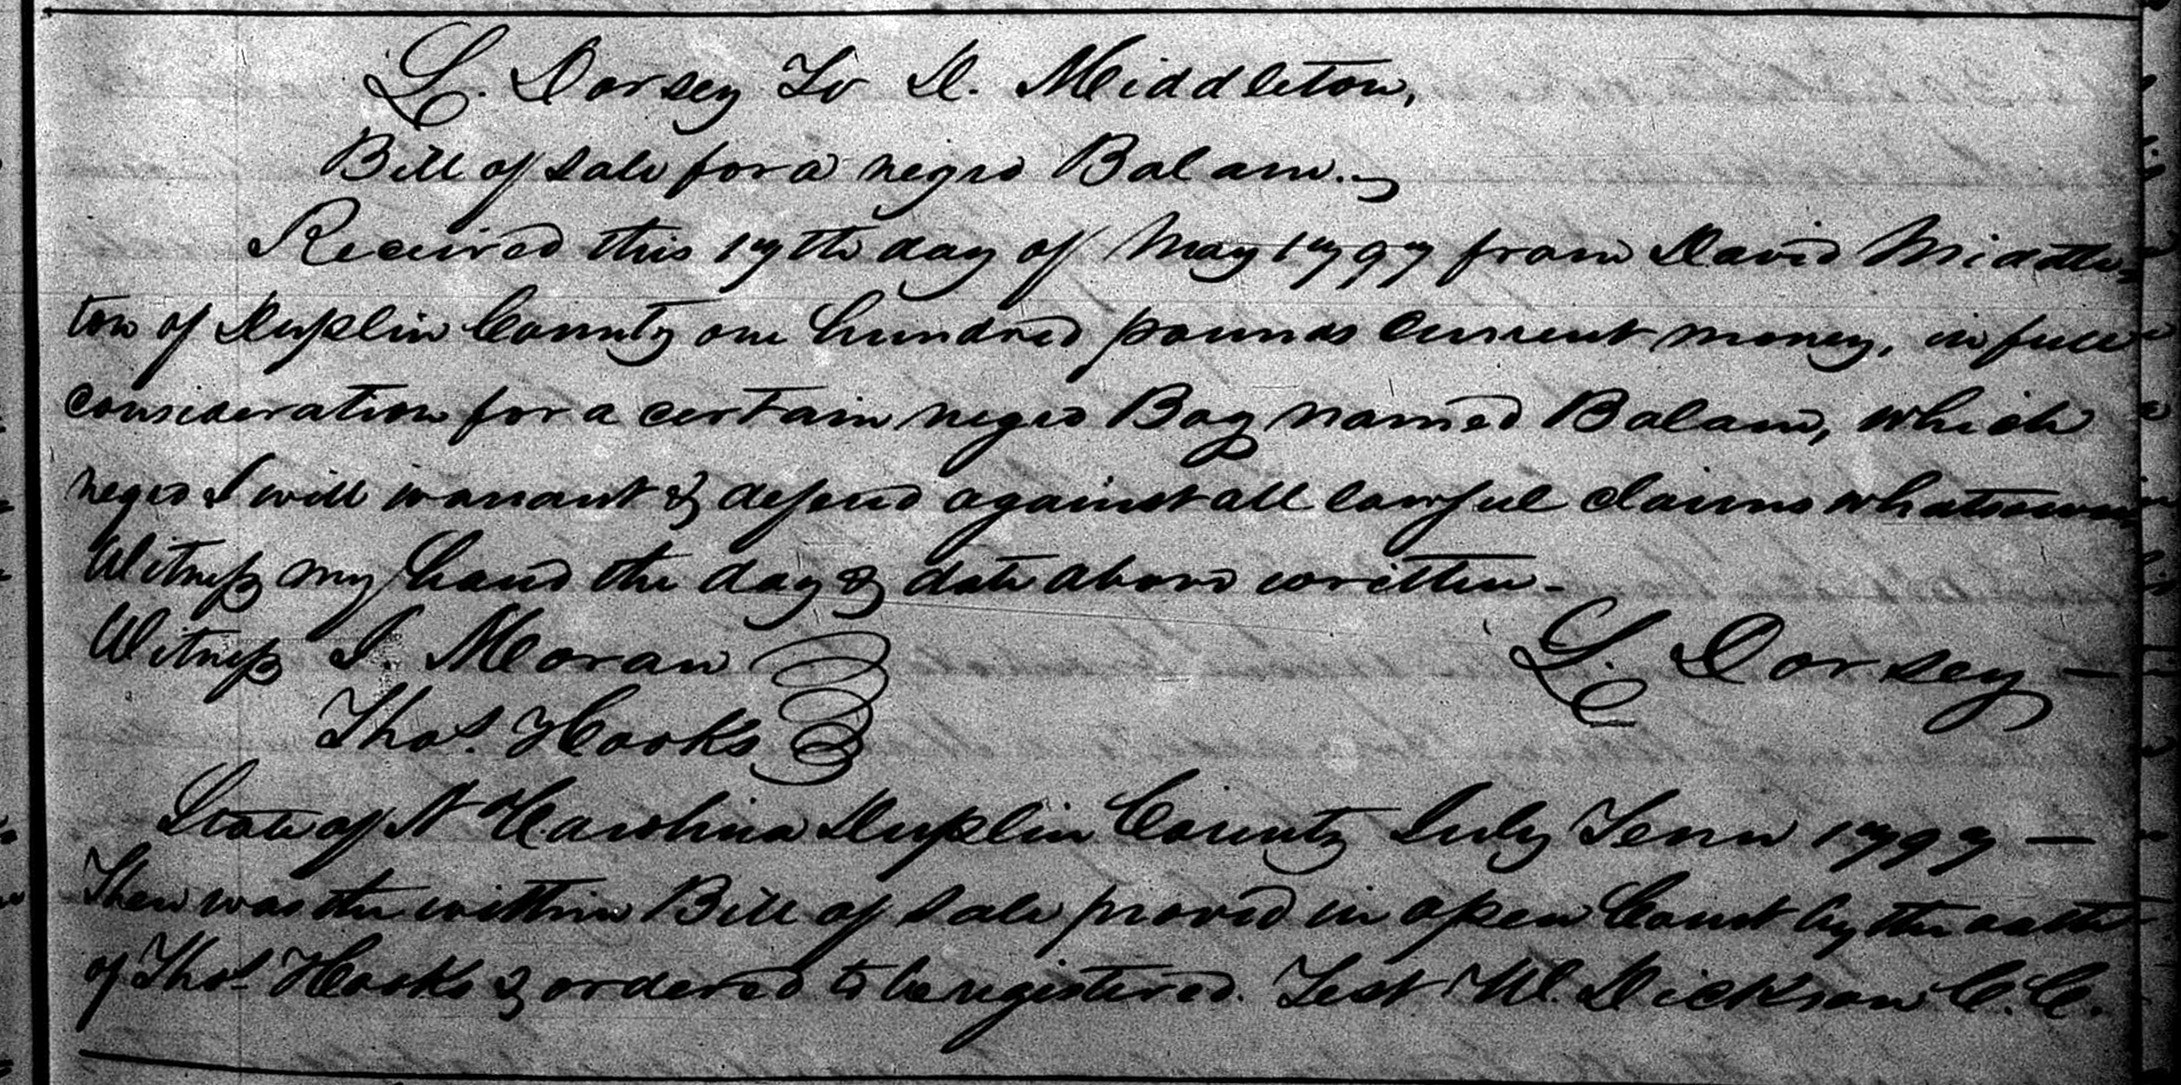 L. Dorsey To D. Middleton,
Bill of sale for a negro Balam.
Received this 17th day of May 1797 from David Middle=
ton of Duplin County one hundred pounds Current money, in full
consideration for a certain negro Boy named Balam, which
negro I will warrant & defend against all lawful claims whatsoever
Witness my hand the day & date above written.
Witness I. Moran L. Dorsey —
Thos. Hooks
State of N Carolina Duplin County July Term 1799 —
Then was the within Bill of Sale proved in open Court by the oath
of Thos. Hooks & ordered to be registered. Test W. Dickson C. C.